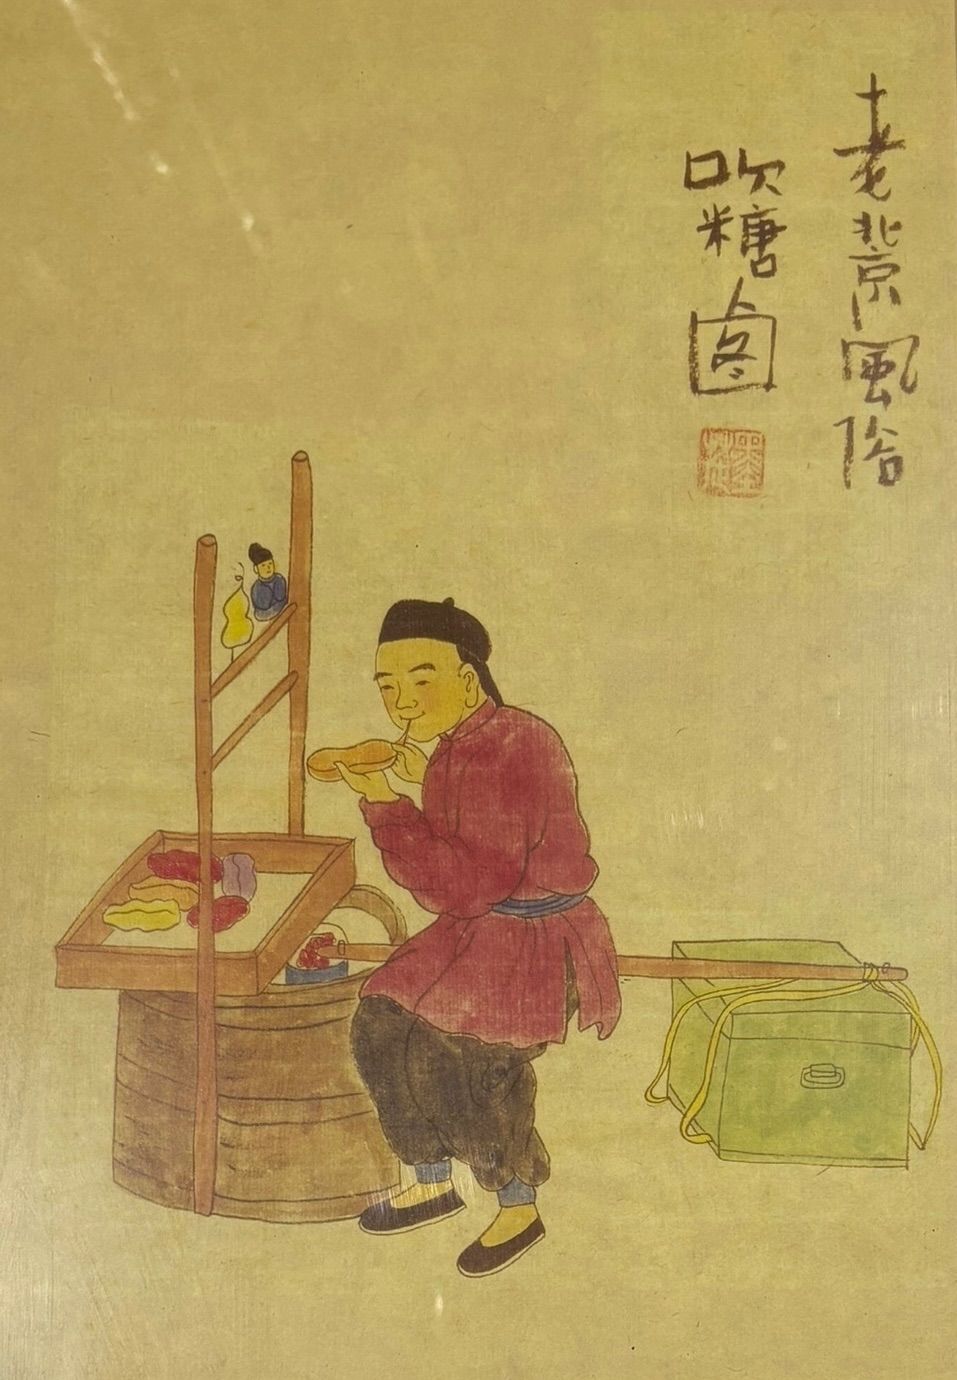 老北京風俗
吹糖人图